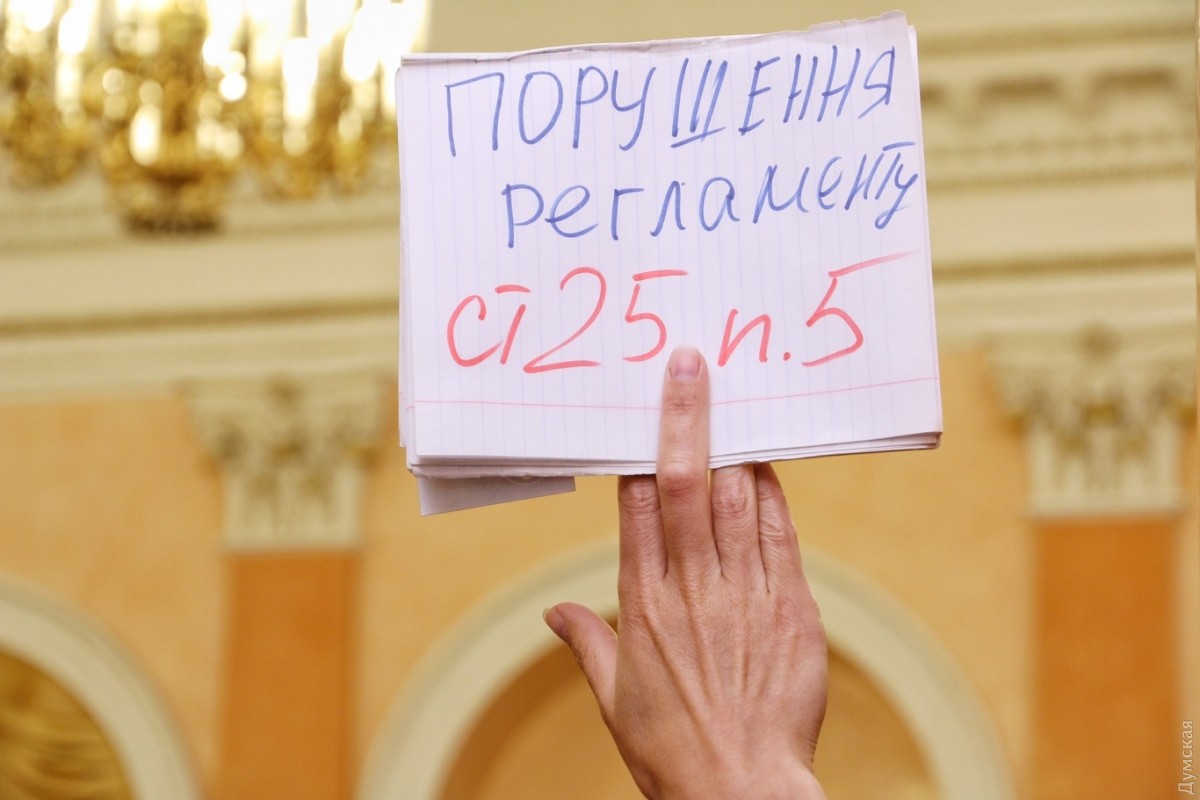 ПОРУШЕННЯ
регламенту
ст 25 п. 5
Думская